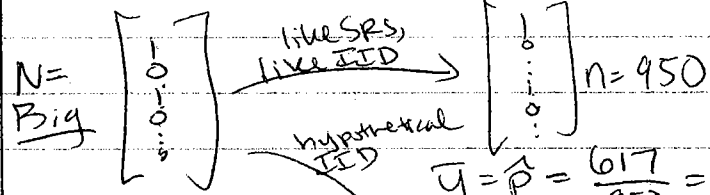 N=
Big
1
0
1
0
⋮
like SRS,
like IID
1
0
⋮
1
0
⋮
n=950
hypothetical
IID
ȳ = p̂ = 617 =